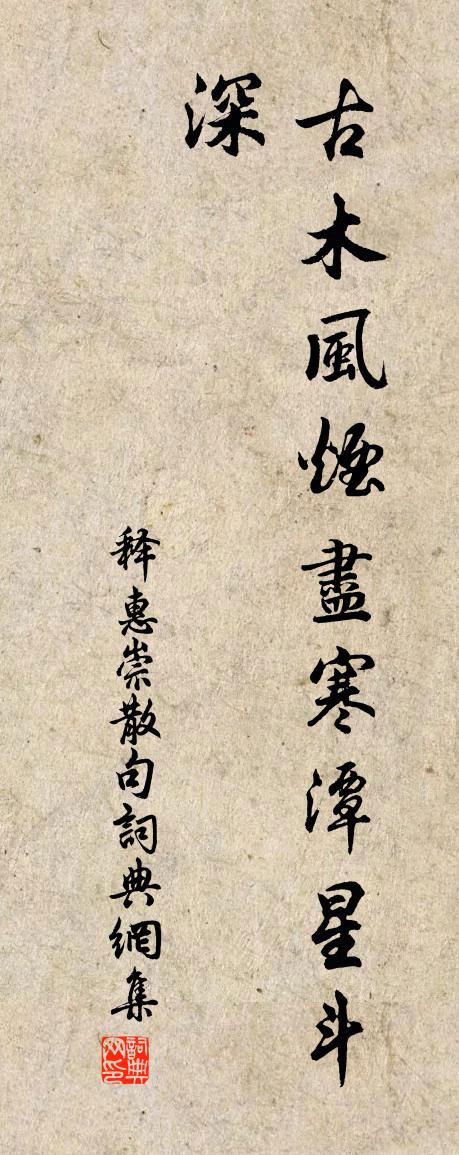 古木風煙盡寒潭星斗
深
释惠崇散句詞典網集
詞典网印